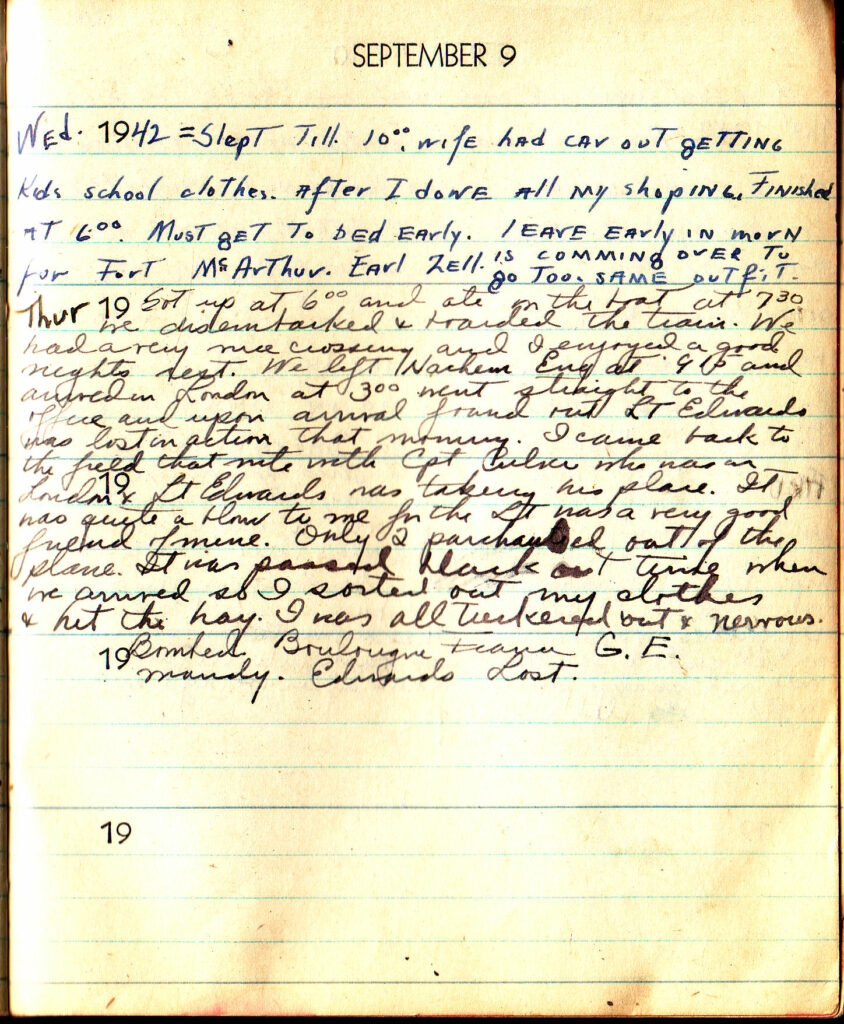 SEPTEMBER 9
Wed. 1942 = Slept Till 10⁰⁰. wife had car out geTTING
Kids school clothes. After I done all my shoping. Finished
AT 6⁰⁰. Must get To bed early. leave early in morn
for Fort McArthur. Earl Zell. is comming over To
go Too. same outfit.
Thur 19 Got up at 6⁰⁰ and ate on the boat at 7³⁰
we disembarked & boarded the train. We
had a very nice crossing and I enjoyed a good
nights rest. We left Eng at 9¹⁵ and
arrived in London at 3⁰⁰ went straight to the
office and upon arrival found out Lt Edwards
was lost in action that morning. I came back to
the field that nite with Cpt who was in
19
London & Lt Edwards was taking his place. It
was quite a blow to me for the Lt was a very good
friend of mine. Only 2 out of the
plane. It was passed black out time when
we arrived so I sorted out my clothes
& hit the hay. I was all tuckered out & nervous.
19 Bombed Boulougne France G. E.
mandy. Edwards Lost.
19